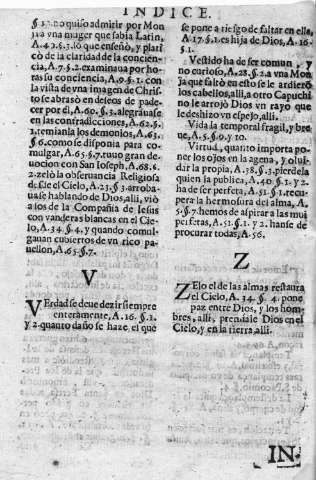 INDICE.
§ 1. no quiso admitir por Mon
ja vna muger que sabia Latin,
A.42.§.3. lo que enseñò, y plati
cò de la claridad de la concien-
cia, A.7.§.2. examinaua por ho-
ras su conciencia, A.9.§.1. con
la vista de vna imagen de Chris-
to se abrasò en deseos de pade-
cer por el, A.60.§.3. alegrauase
en las contradicciones, A.62.§
2. temianla los demonios, A.63.
§.6. como se disponia para co-
mulgar, A.65.§.7. tuuo gran de
uocion con San Ioseph, A.68.§.
2. zelò la obseruancia Religiosa
dese el Cielo, A.23.§.3. arroba-
uase hablando de Dios, alli, viò
a los de la Compañia de Iesus
con vanderas blancas en el Cie-
lo, A.34.§.4. y quando comul-
gauan cubiertos de vn rico pa-
uellon, A.65.§.7.
V
VErdad se deue dezir siempre
enteramente, A.16.§.1.
y 2. quanto daño se haze el que
se pone a riesgo de faltar en ella,
A.17.§.1. es hija de Dios, A.16.
§.1.
Vestido ha de ser comun, y
no curioso, A.28.§.2. a vna Mon
ja que faltò en esto se le ardieron
los cabellos, alli, a otro Capuchi
no le arrojò Dios vn rayo que
le deshizo vn espejo, alli.
Vida la temporal fragil, y bre
ue, A.5.§.9. y 10.
Virtud, quanto importa po-
ner los ojos en la agena, y olui-
dar la propia, A.38.§.3. pierdela
quien la publica, A.40.§.1. y 2.
ha de ser perfeta, A.51.§.1. recu
pera la hermosura del alma, A.
5.§.7. hemos de aspirar a las mui
perfetas, A.51.§.1. y 2. hanse de
procurar todas, A.56.
Z
ZElo el de las almas restaura
el Cielo, A.34.§.4. pone
paz entre Dios, y los hom-
bres, alli, prendase Dios en el
Cielo, y en la tierra, alli.
IN-